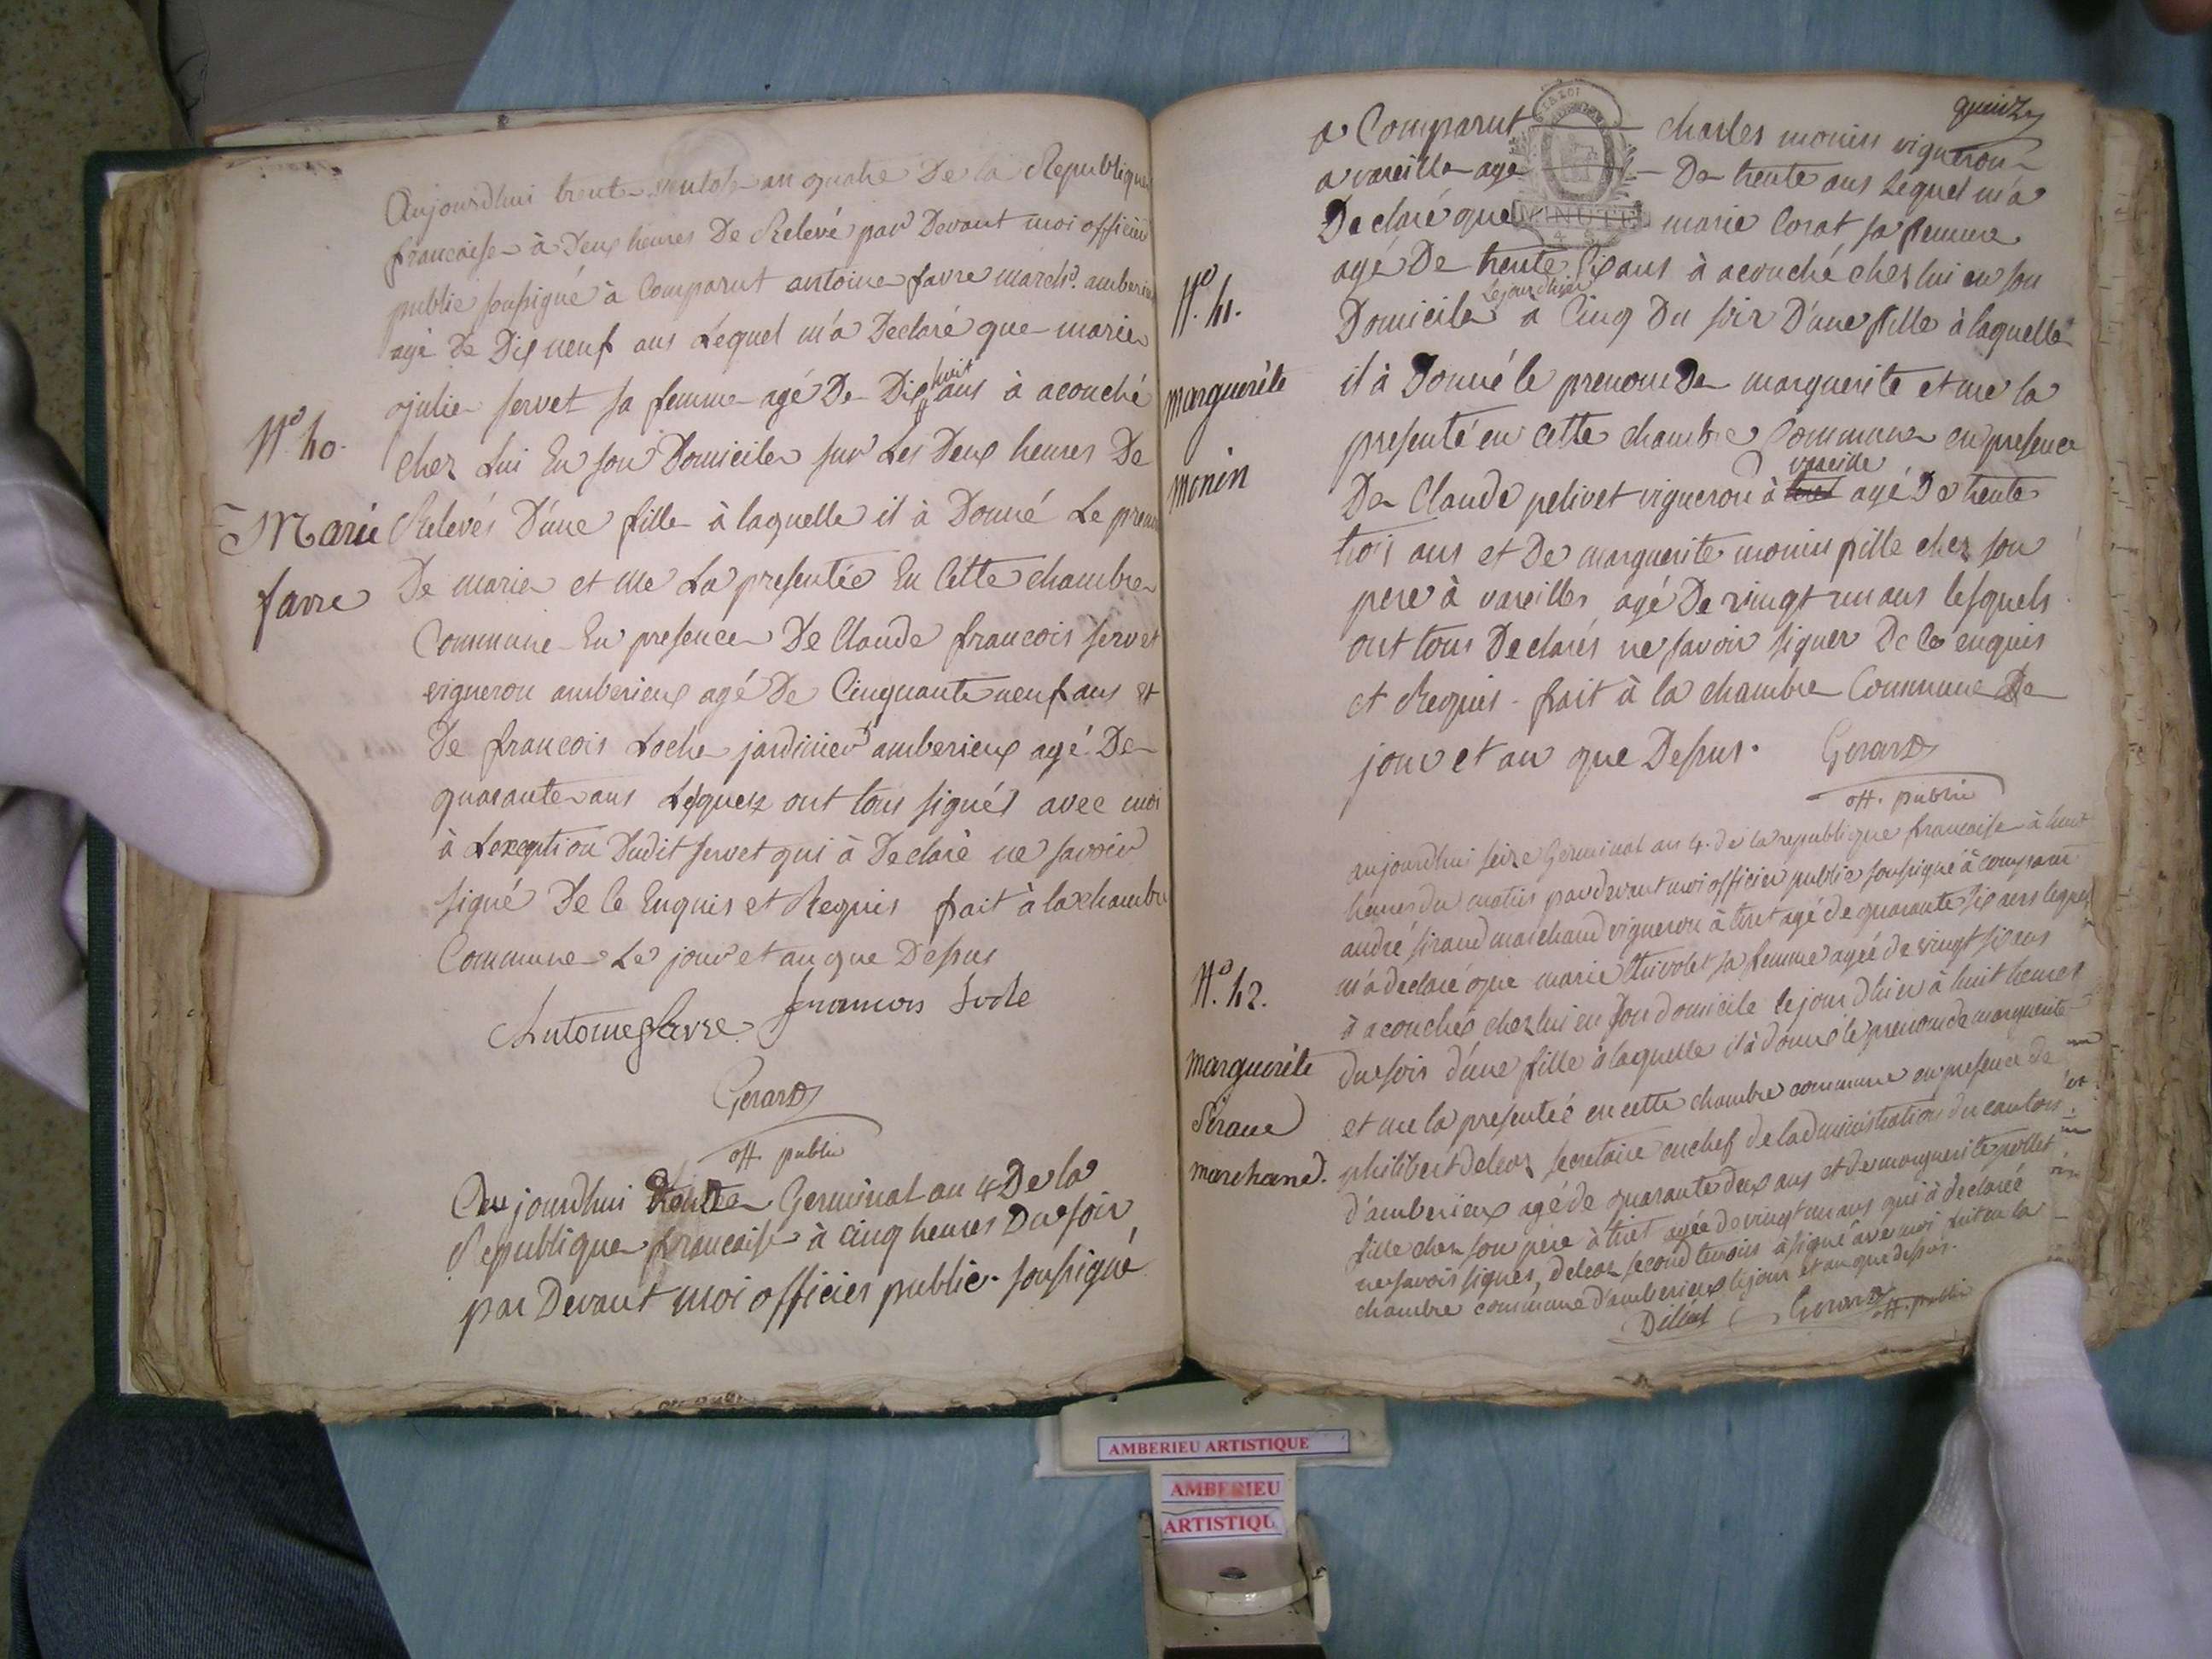 Aujourdhui trente ventose an quatre De la Republique
francaise à Deux heures De Relevé par Devant moi officier
public soussigné à Comparut antoine favre march.d amberieu
agé De Dix neuf ans Lequel m'a Declaré que marie
julie servet sa femme agé De Dix huit ans à acouché
N.o 40.
chez Lui En son Domicile sur Les Deux heures De
Marie
Relevés D'une fille à laquelle il à Donné Le prenom
favre
De marie et me La presentée En Cette chambre
Commune En presence De Claude francois servet
vigneron amberieux agé De Cinquante neuf ans et
De francois Loche jardinier amberieux agé De
quarante ans Lesquelz ont tous signés avec moi
à Lexception Dudit servet qui à Declaré ne savoir
signé De Ce Enquis et Requis fait à la chambre
Commune Le jour et an que Dessus
Antoine favre francois
Gerard
off. public
Aujourdhui Germinal an 4 De la
Republique francaise à cinq heures Du soir
par Devant moi officier public soussigné
a Comparut charles monin vigneron
quinze
a vareille age De trente ans Lequel m'a
Declaré que marie Corat sa femme
MINUTE
agé De trente six ans à acouché chez lui en son
N.o 41.
Domicile Lejourdhier a Cinq Du soir D'une fille à laquelle
marguerite
il à Donné le prenom De marguerite et me la
presenté en cette chambre Commune en presence
monin
De Claude pelivet vigneron à vareille agé De trente
trois ans et De marguerite monin fille chez son
pere à vareilles agé De vingt un ans lesquels
ont tous Declarés ne savoir signer De Ce enquis
et Requis fait à la chambre Commune De
jour et an que Dessus.
Gerard
off. public
aujourdhui seize Germinal an 4. de la republique francaise à huit
heures du matin pardevant moi officier public soussigné à comparu
andré siraud marchand vigneron à tiret agé de quarante six ans lequel
m'a declaré que marie thivolet sa femme agée de vingt six ans
N.o 42.
à acouchés chez lui en son domicile le jour d'hier à huit heures
marguerite
du soir d'une fille à laquelle il à donné le prenom de marguerite
Siraud
et me la presentée en cette chambre commune en presence de
marchand.
philibert secretaire en chef de ladministration du canton
d'amberieux agé de quarante deux ans et de marguerite
fille chez son père à tiret agée de vingt un ans qui à declarée
ne savoir signer, second temoin à signé avec moi fait en la
chambre commune d'amberieux le jour et an que dessus.
Gerard off. public
AMBERIEU ARTISTIQUE
AMBERIEU
ARTISTIQU